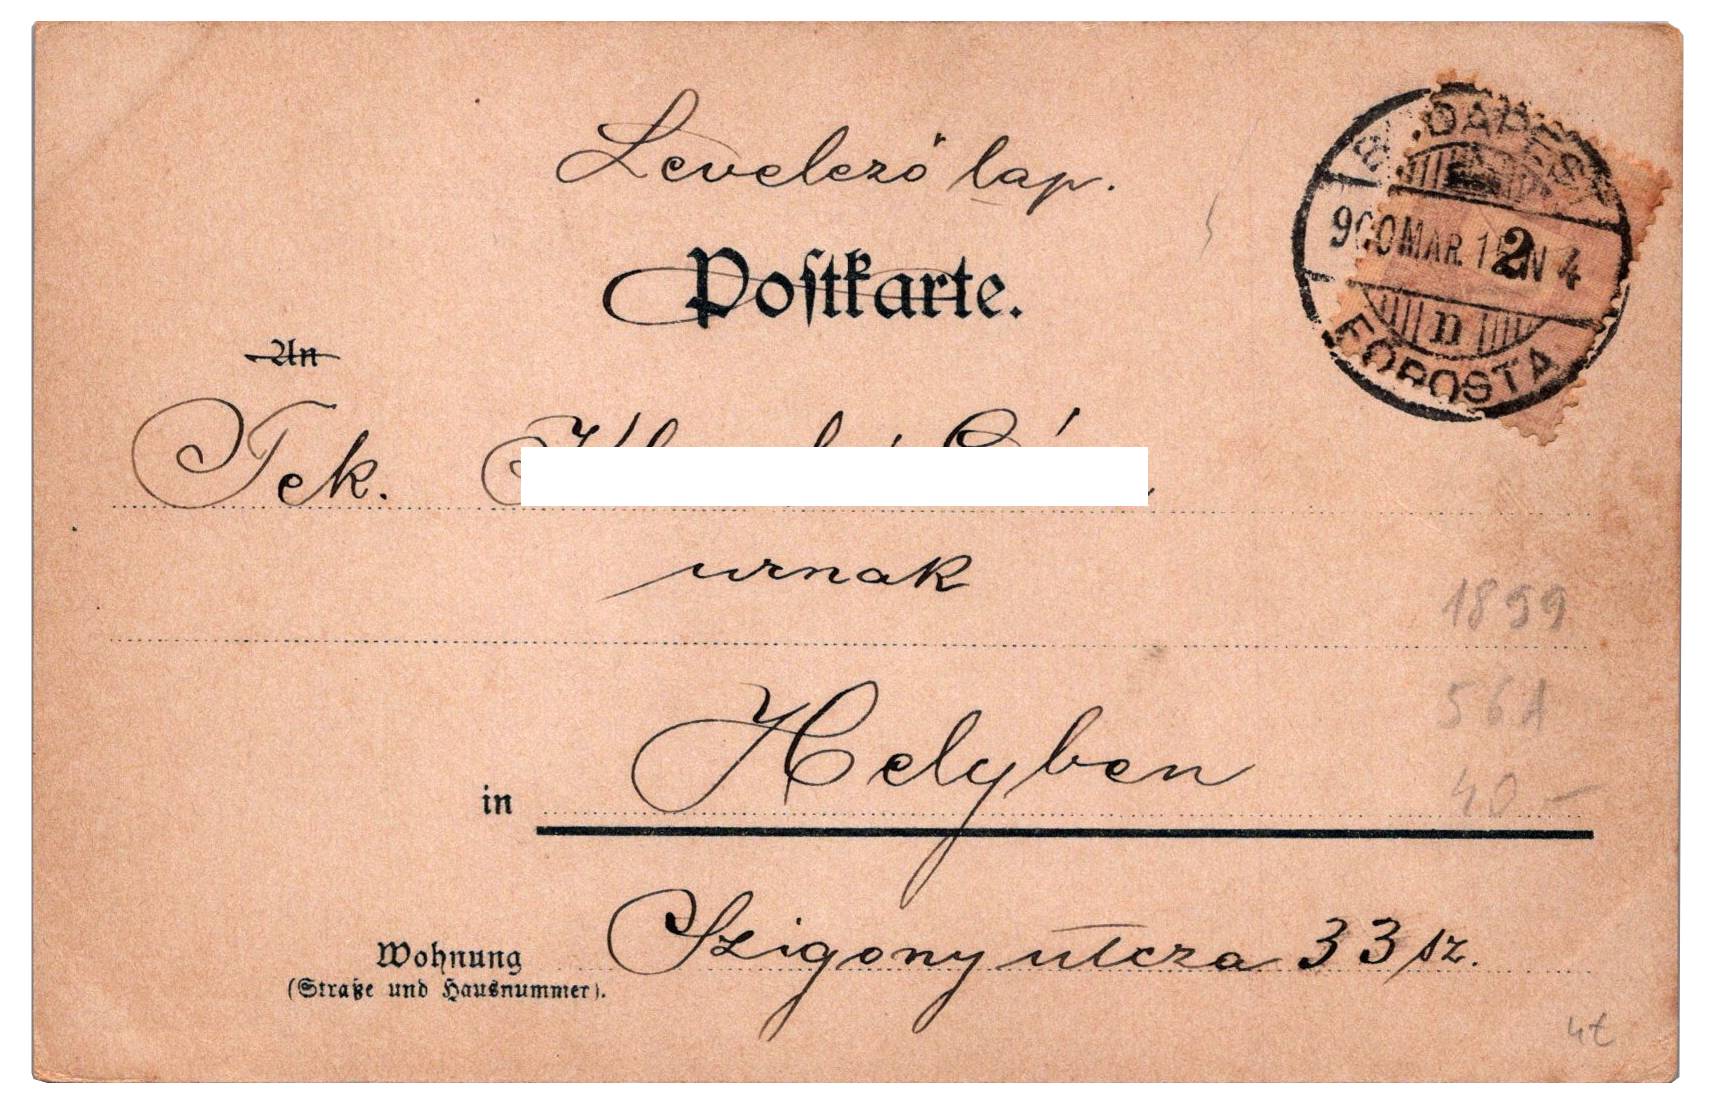 Levelező lap.
Postkarte.
BUDAPEST
900 MAR. 15 N 4
2
n
FŐPOSTA
An
Tek.
urnak
1899
56A
Helyben
in
40.-
Szigony utcza 33 sz.
Wohnung
(Straße und Hausnummer).
4t